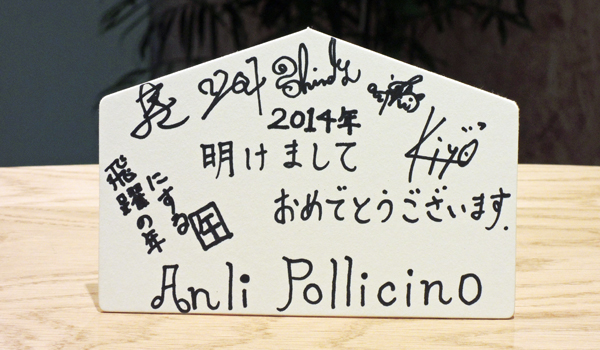 Shindy
Kiyo
2014年
明けまして
おめでとうございます.
飛躍の年
にする
Anli Pollicino